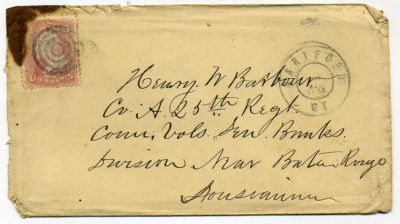 HARTFORD
CT
Henry W Barbour
Co. A. 25th Regt
Conn. Vols. Gen. Banks.
Division Near Baton Rouge
Louisiana